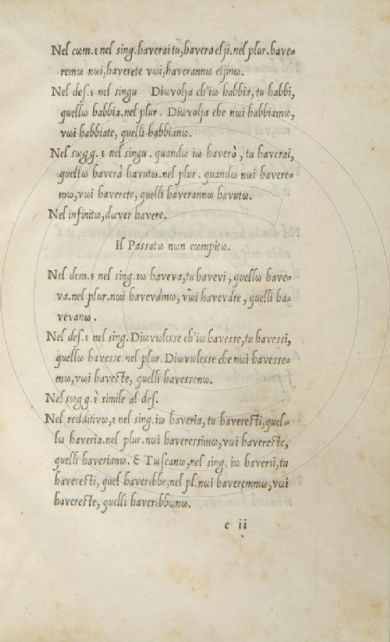 Nel cωm. ε nel sing. haverai tu, haverà elji. nel plur. have-
remω nωi, haverete vωi, haverannω eljinω.
Nel deſ. ε nel singu Diωvωlja ch'iω habbia, tu habbi,
quellω habbia. nel plur. Diωvωlja che nωi habbiamω,
vωi habbiate, quelli habbianω.
Nel sωgg. ε nel singu. quandω iω haverò, tu haverai,
quellω haverà havutω. nel plur. quandω nωi havere-
mω, vωi haverete, quelli haverannω havutω.
Nel infinitω, dωver havere.
Il Paſſatω nωn cωmpitω.
Nel dem. ε nel sing. iω haveva, tu havevi, quellω have-
va. nel plur. nωi havevámω, vωi haveváte, quelli ha-
vevanω.
Nel deſ. ε nel sing. Diωvωleſſe ch'iω haveſſe, tu haveſſi,
quellω haveſſe. nel plur. Diωvωleſſe che nωi haveſſe-
mω, vωi haveſte, quelli haveſſenω.
Nel sωgg. ὲ simile al deſ.
Nel redditivω, ε nel sing. iω haveria, tu havereſti, quel-
lω haveria. nel plur. nωi havereſſimω, vωi havereſte,
quelli haverianω. Ɛ Tωſcanω, nel sing. iω haverεi, tu
havereſti, quel haverεbbe; nel pl. nωi haveremmω, vωi
havereſte, quelli haverεbbωnω.
c ii